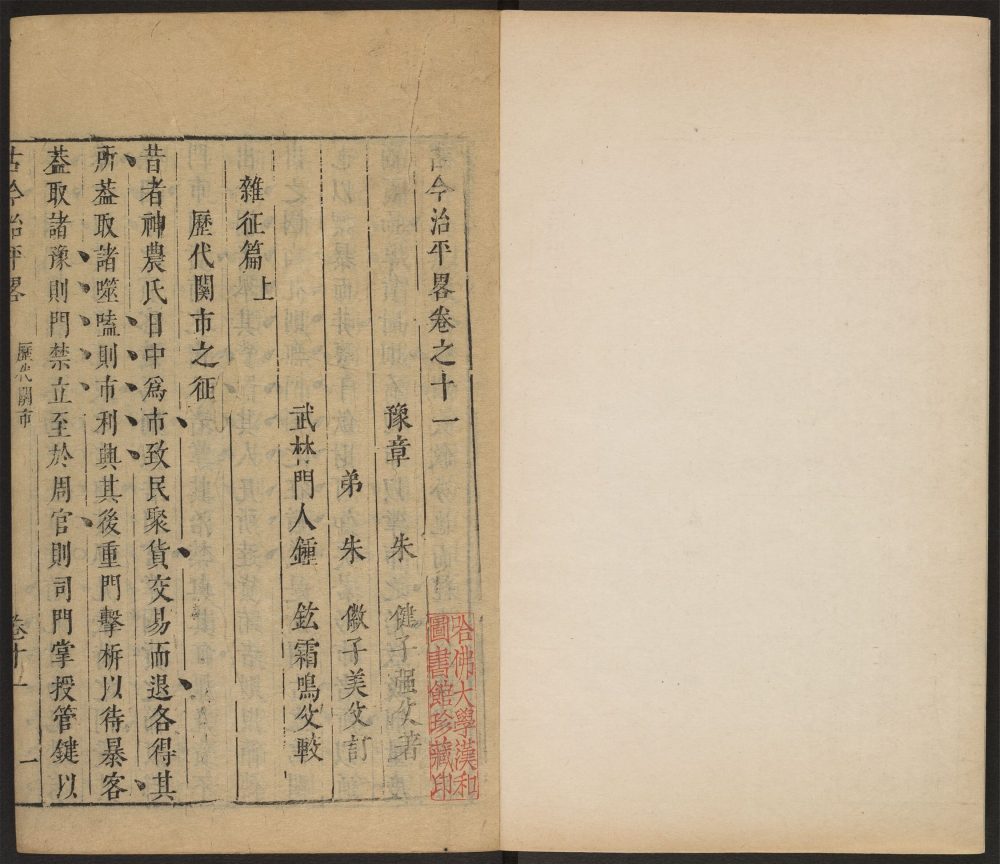 古今治平畧卷之十一
豫章 朱 健子強父著
弟 朱 徽子美父訂
武林門人鍾 鉉霜鳴父較
雜征篇上
歷代關市之征
昔者神農氏日中爲市致民聚貨交易而退各得其
所葢取諸噬嗑則市利興其後重門擊柝以待暴客
葢取諸豫則門禁立至於周官則司門掌授管鍵以
古今治平畧 歷代關市 卷十一 一
哈佛大學漢和
圖書館珍藏印